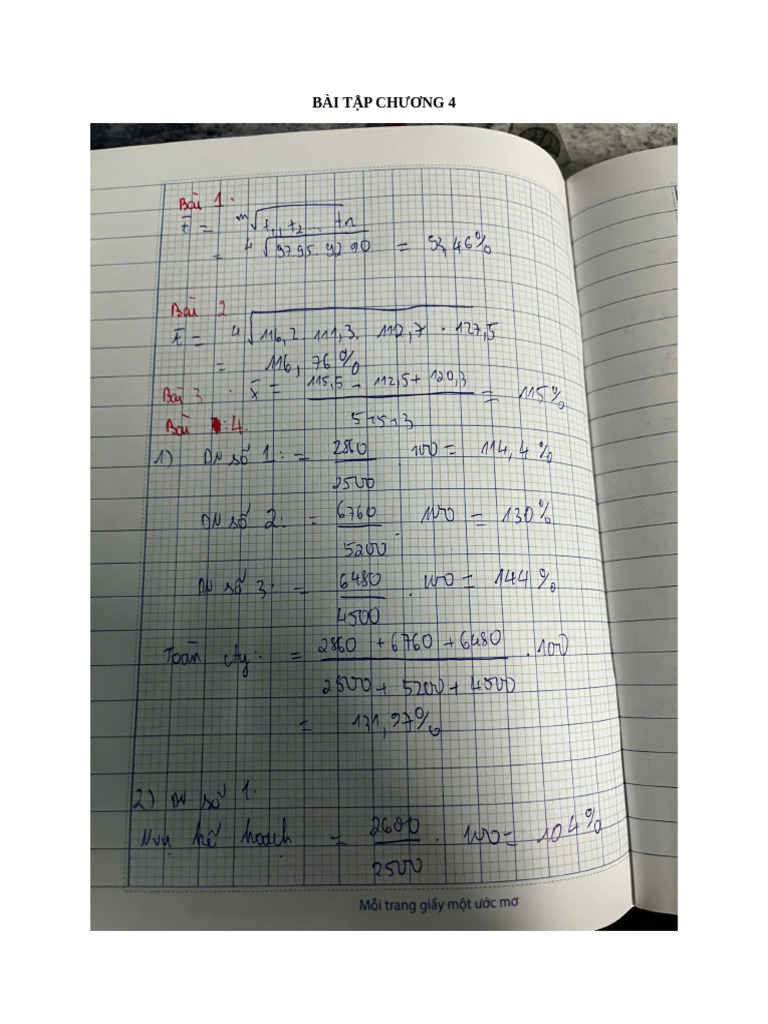 BÀI TẬP CHƯƠNG 4
Bài 1:
t̄ = ᵐ√t₁, t₂ ... tn
= ⁴√97 95. 92 90 = 93,46%
Bài 2
t̄ = ⁴√116,2. 111,3. 112,7 . 127,5
= 116,76%
Bài 3 . x̄ = (115,5 + 112,5 + 120,3) / (5+5+3) = 115%
Bài 4.
1) DN số 1: = 2860/2500 . 100 = 114,4%
DN số 2: = 6760/5200 . 100 = 130%
DN số 3: = 6480/4500 . 100 = 144%
Toàn cty: = (2860 + 6760 + 6480) / (2500 + 5200 + 4500) . 100
= 131,97%
2) DN số 1:
Nvụ kế hoạch = 2600/2500 . 100 = 104%
Mỗi trang giấy một ước mơ